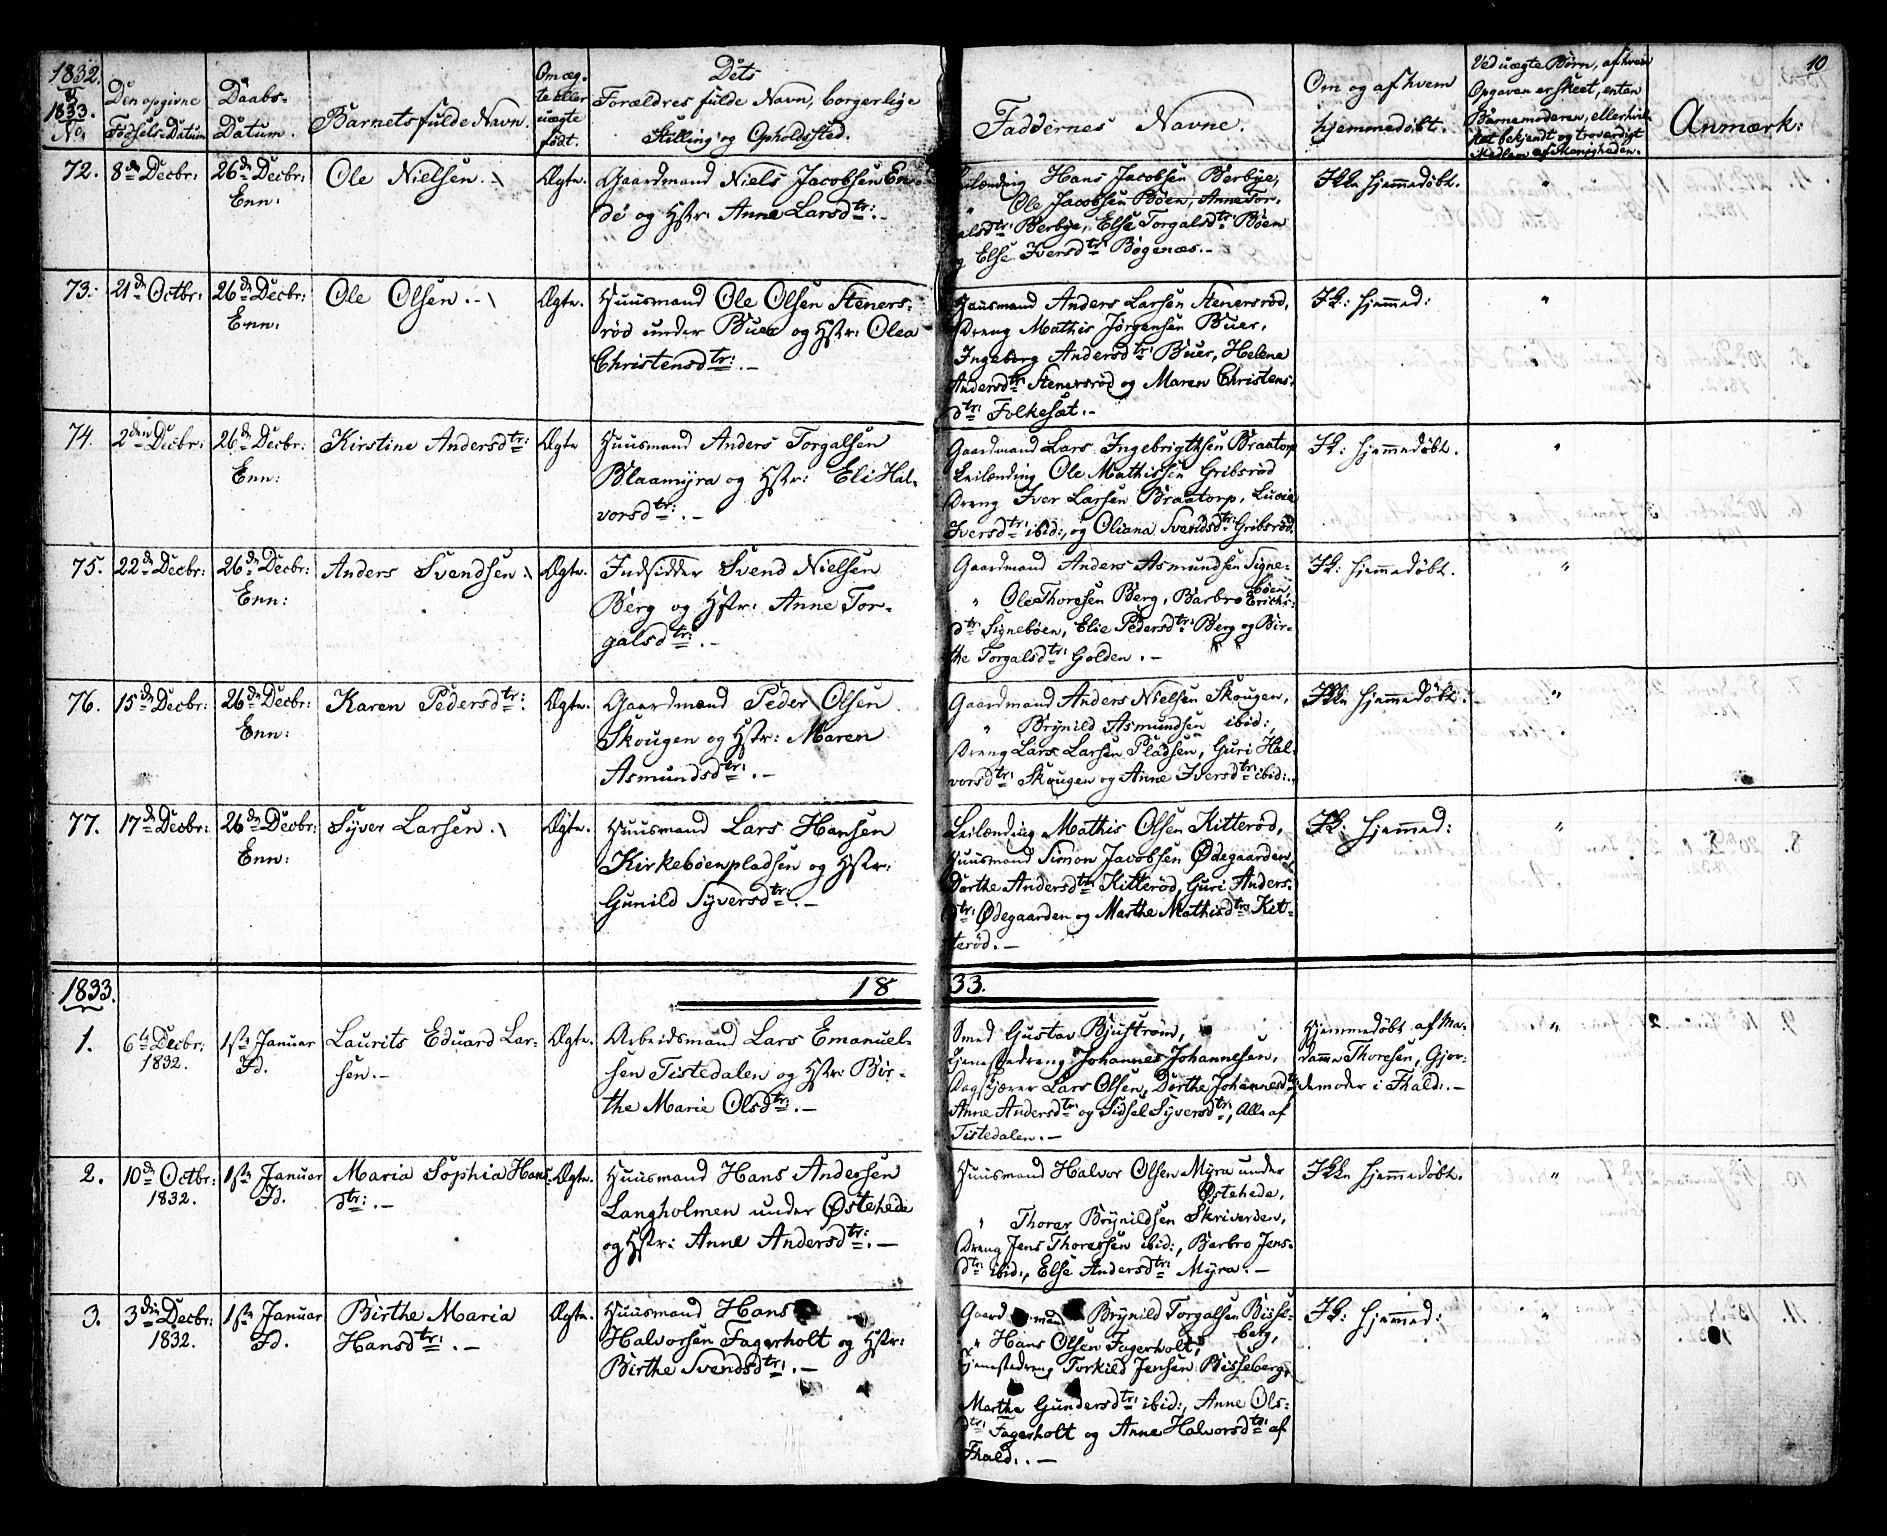 1832.
&
1833.
No.
Den opgivne
Fødsels-Datum
Daabs-
Datum.
Barnets fulde Navn.
Om æg-
te eller
uægte
født.
Dets
Forældres fulde Navn, borgerlige
Stilling og Opholdssted.
Faddernes Navne.
Om og af hvem
hjemmedøbt.
Ved uægte Børn, af hvem
Opgaven er skeet, enten
Barnemoderen, eller hvil-
ket bekjendt og troværdigt
Medlem af Menigheden.
Anmærk:
10
72. 8de Decbr: 26de Decbr: Enn: Ole Nielsen. Ægte.
Gaardmand Niels Jacobsen En-
de og Hstr: Anne Larsdtr: -
Leilænding Hans Jacobsen Berbye,
" Ole Jacobsen Böen, Anne Tor-
galsdtr: Berbye, Else Torgalsdtr: Böen
og Else Iversdtr: Bøgenæs. -
Ikke hjemmedøbt. "
73. 21de Octbr: 26de Decbr: Enn: Ole Olsen. - Ægte.
Huusmand Ole Olsen Steners-
röd under Buer og Hstr: Olea
Christensdtr: . -
Huusmand Anders Larsen Stenersröd,
Dreng Mathis Jørgensen Buer,
Ingeborg Andersdtr: Buer, Helene
Andersdtr: Stenersröd og Maren Christens-
dtr: Folkesæt. -
Ik: hjemmed: "
74. 2den Decbr: 26de Decbr: Enn: Kirstine Andersdtr: Ægte
Huusmand Anders Torgalsen
Blaamyra og Hstr: Eli Hal-
vorsdtr: . -
Gaardmand Lars Ingebrigthsen Braatorp
Leilænding Ole Mathissen Gribsröd
Dreng Iver Larsen Braatorp, Lucie
Iversdtr: ibid:, og Oliana Svendsdtr: Gribsröd.
Ik: hjemmedøbt. "
75. 22de Decbr: 26de Decbr: Enn: Anders Svendsen. Ægte.
Indsidder Svend Nielsen
Berg og Hstr: Anne Tor-
galsdtr: . -
Gaardmand Anders Asmundsen Signe-
böen,
" Ole Thoresen Berg, Barbro Erichs-
dtr: Signebøen, Elie Pedersdtr: Berg og Bir-
the Torgalsdtr: Golden. -
Ik: hjemmedøbt. "
76. 15de Decbr: 26de Decbr: Enn: Karen Pedersdtr: Ægte.
Gaardmand Peder Olsen
Skougen og Hstr: Maren
Asmundsdtr: . -
Gaardmand Anders Nielsen Skougen,
" Brynild Asmundsen ibid:,
Dreng Lars Larsen Pladsen, Guri Hal-
vorsdtr: Skougen og Anne Iversdtr: ibid: -
Ikke hjemmedøbt. "
77. 17de Decbr: 26de Decbr: Enn: Syver Larsen. Ægte.
Huusmand Lars Hansen
Kirkebøenpladsen og Hstr:
Gunild Syversdtr: . -
Leilænding Mathis Olsen Kitteröd,
Huusmand Simon Jacobsen Ødegaarden,
Dorthe Andersdtr: Kitteröd, Guri Anders-
dtr: Ødegaarden og Marthe Mathisdtr: Kit-
teröd. -
Ik: hjemmed: "
1833.
1833.
1. 6te Decbr: 1832. 1ste Januar Fd. Laurits Eduard Lar-
sen. - Ægte.
Arbeidsmand Lars Emanuel-
sen Tistedalen og Hstr: Bir-
the Marie Olsdtr: . -
Smed Gustav Bjuström,
Tjenestedreng Johannes Johannesen,
Dagskjærer Lars Olsen, Dorthe Johannesdtr:
Anne Andersdtr: og Sidsel Syversdtr:, Alle af
Tistedalen. -
Hjemmedøbt af Ma-
damme Thoresen, Gjor-
demoder i Fhald: . -
"
2. 10de Octbr: 1832. 1ste Januar Fd. Maria Sophia Hans-
dtr: . - Ægte.
Huusmand Hans Andersen
Langholmen under Østehede
og Hstr: Anne Andersdtr: . -
Huusmand Halvor Olsen Myra under
Østehede,
" Thorer Brynildsen Skriverøen,
Dreng Jens Thoressen ibid:, Barbro Jens-
dtr: ibid:, Else Andersdtr: Myra. -
Ikke hjemmedøbt. "
3. 3die Decbr: 1832. 1ste Januar Fd. Birthe Maria
Hansdtr: . - Ægte.
Huusmand Hans
Halvorsen Fagerholt og Hstr:
Birthe Svendsdtr: . -
Gaardmand Brynild Torgalsen Bisse-
berg,
" Hans Olsen Fagerholt,
Tjenestedreng Torkild Jensen Bisseberg,
Marthe Gundersdtr: ibid:, Anne Ols-
dtr: Fagerholt og Anne Halvorsdtr: af
Fhald: . -
Ik: hjemmed: "